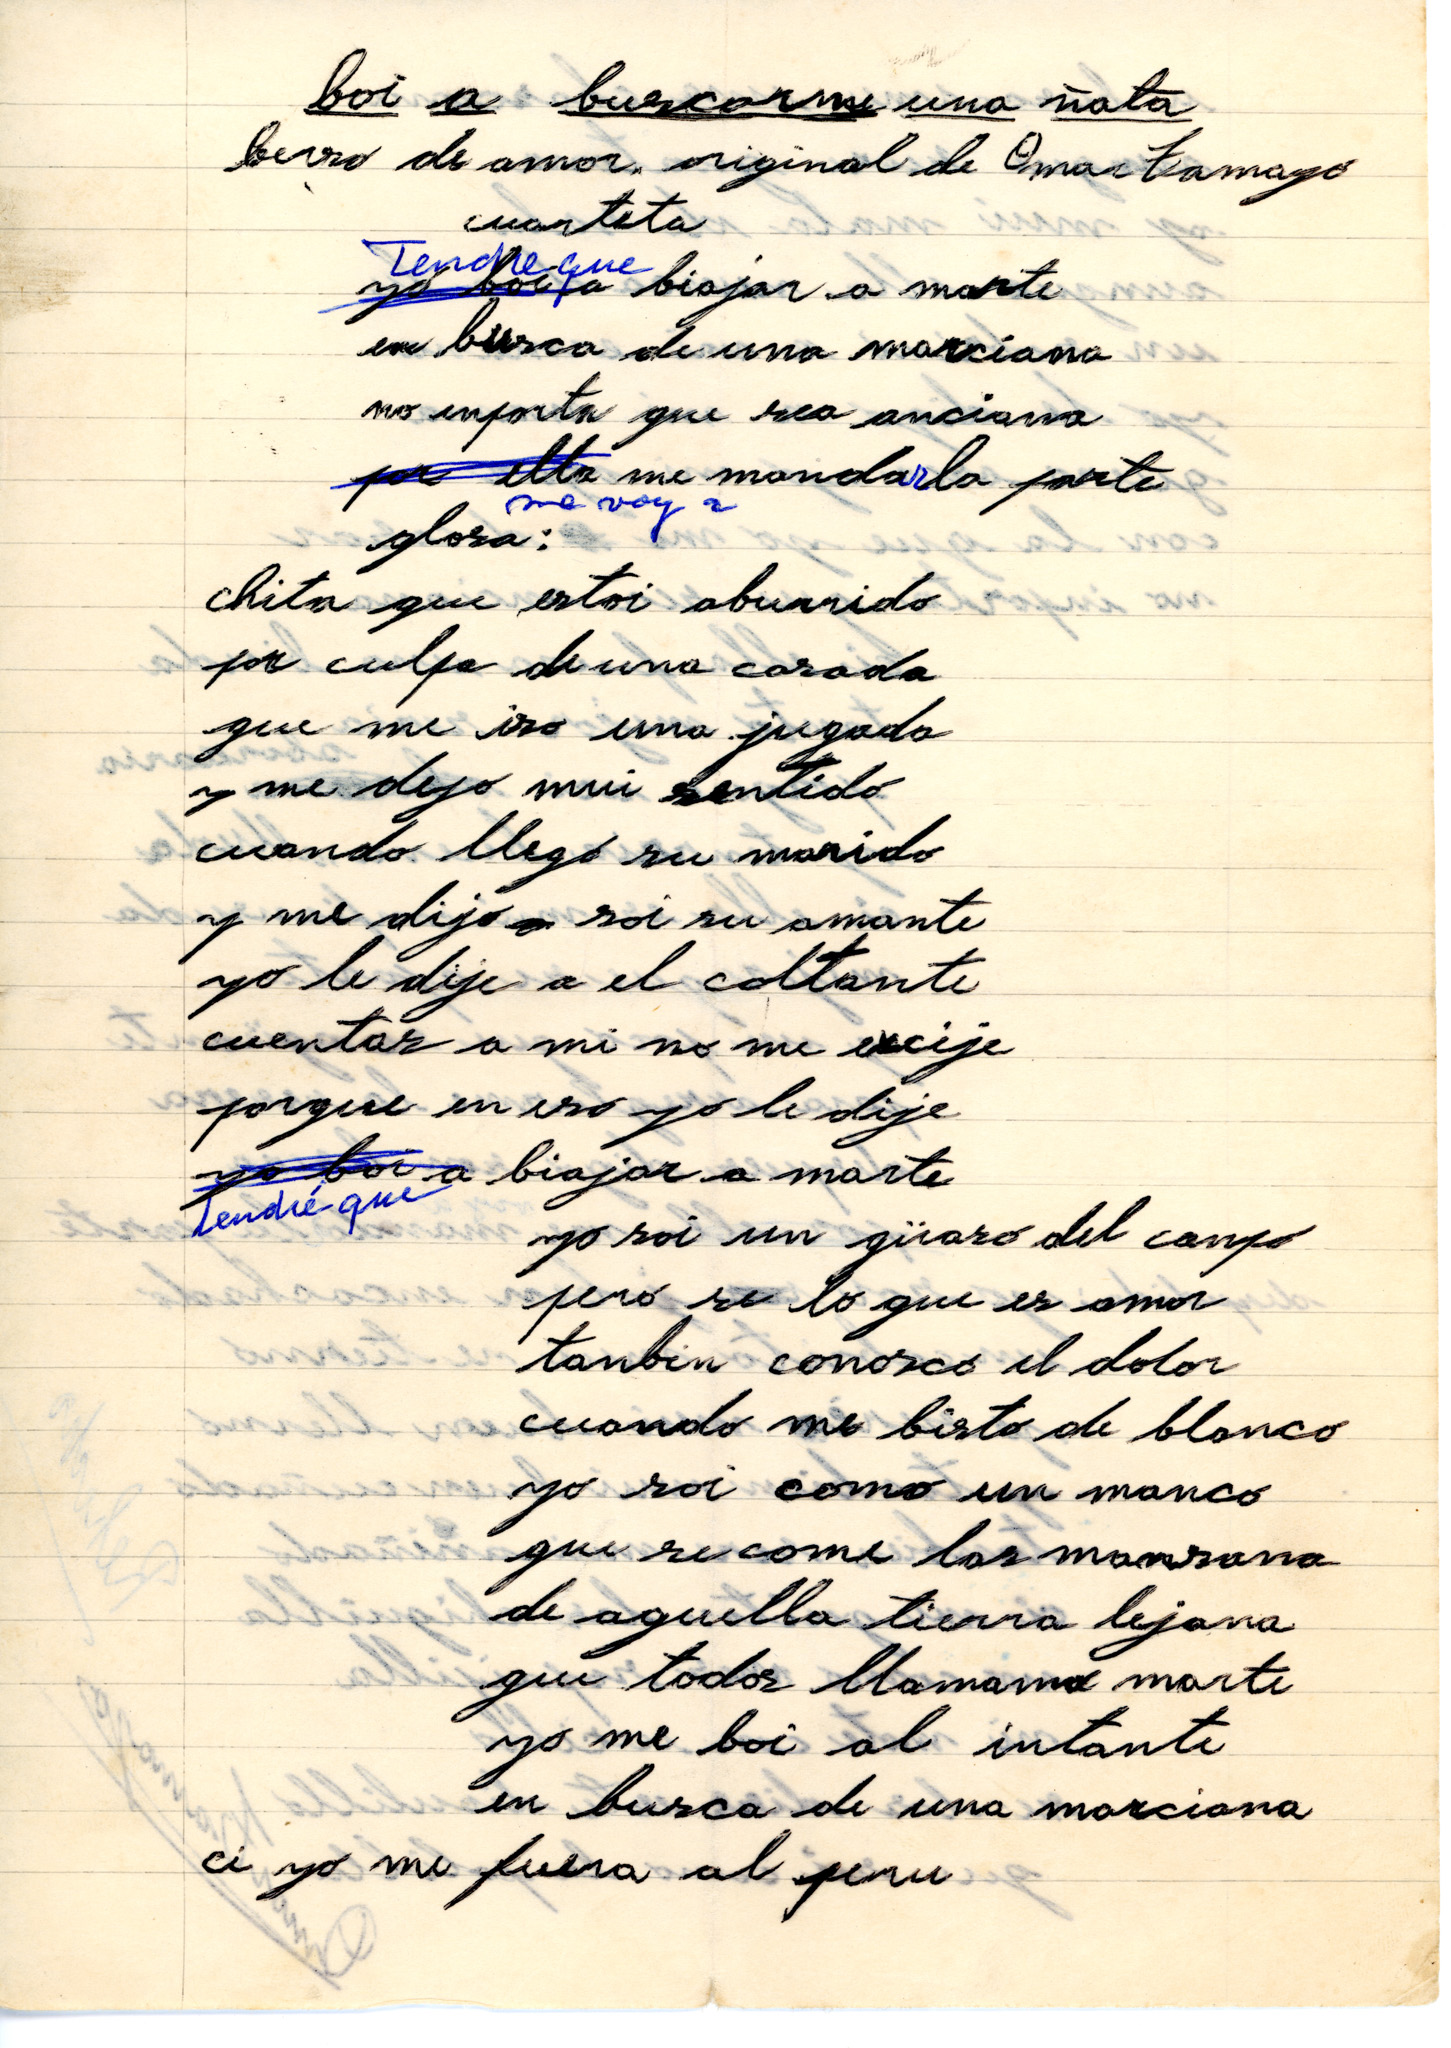 boi a buscarme una ñata
berso de amor. original de Omar Tamayo
cuarteta
Tendre que
yo boi a biajar a marte
en busca de una marciana
no inporta que sea anciana
por ella me mandarla parte
me voy a
glosa:
chita que estoi aburrido
por culpa de una casada
que me iso una jugada
y me dejo mui sentido
cuando llego su marido
y me dijo soi su amante
yo le dije a el coltante
cuentas a mi no me excije
porque en eso yo le dije
yo boi a biajar a marte
Tendré que
yo soi un güaso del canpo
pero se lo que es amor
tanbin conosco el dolor
cuando me bisto de blanco
yo soi como un manco
que se come las mansana
de aquella tierra lejana
que todos llaman marte
yo me boi al intante
en busca de una marciana
ci yo me fuera al peru